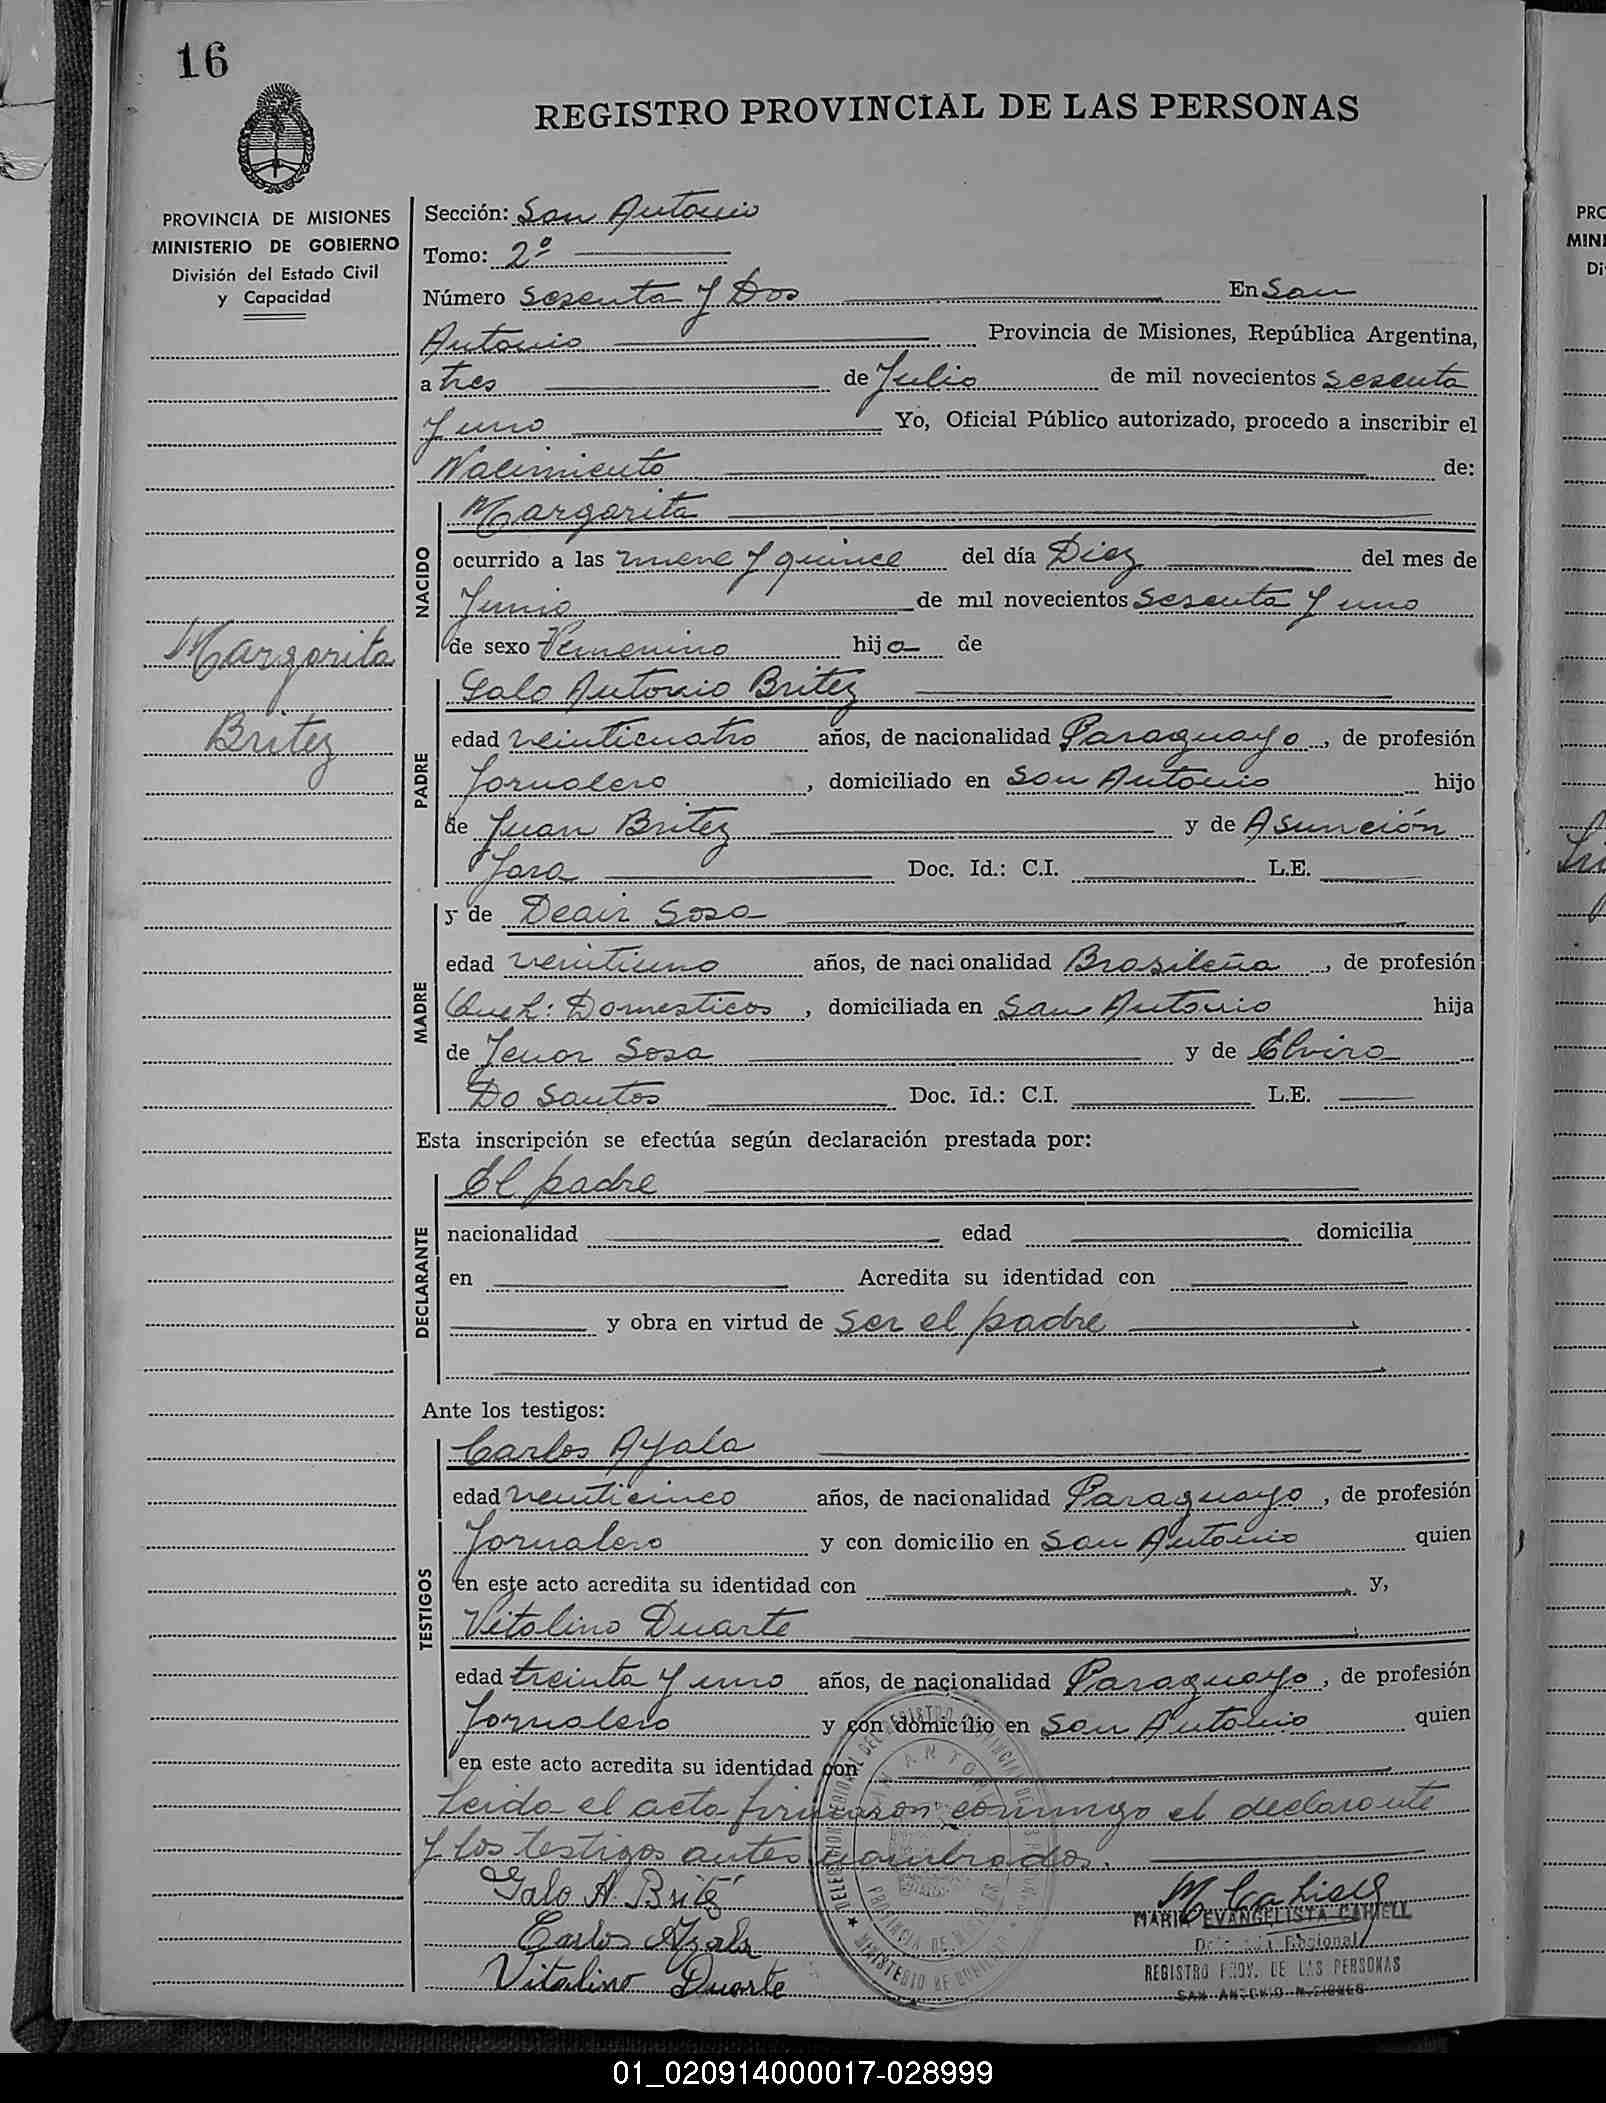 16
REGISTRO PROVINCIAL DE LAS PERSONAS
PROVINCIA DE MISIONES
MINISTERIO DE GOBIERNO
División del Estado Civil
y Capacidad
Margarita
Britez
Sección: San Antonio
Tomo: 2º
Número Sesenta y Dos En San
Antonio Provincia de Misiones, República Argentina,
a tres de Julio de mil novecientos sesenta
y uno Yo, Oficial Público autorizado, procedo a inscribir el
Nacimiento de:
NACIDO
Margarita
ocurrido a las nueve y quince del día Diez del mes de
Junio de mil novecientos sesenta y uno
de sexo Femenino hija de
PADRE
Galo Antonio Britez
edad veinticuatro años, de nacionalidad Paraguayo, de profesión
Jornalero, domiciliado en San Antonio hijo
de Juan Britez y de Asunción
Jara Doc. Id.: C.I. L.E.
MADRE
y de Deair Sosa
edad veintiuno años, de nacionalidad Brasileña, de profesión
Queh: Domesticos, domiciliada en San Antonio hija
de Jenor Sosa y de Elvira
Do Santos Doc. Id.: C.I. L.E.
Esta inscripción se efectúa según declaración prestada por:
DECLARANTE
El padre
nacionalidad edad domicilia
en Acredita su identidad con
y obra en virtud de ser el padre
Ante los testigos:
TESTIGOS
Carlos Ayala
edad veinticinco años, de nacionalidad Paraguayo, de profesión
Jornalero y con domicilio en San Antonio quien
en este acto acredita su identidad con y,
Vitalino Duarte
edad treinta y uno años, de nacionalidad Paraguayo, de profesión
Jornalero y con domicilio en San Antonio quien
en este acto acredita su identidad con
Leida el acta firmaron conmigo el declarante
y los testigos antes nombrados.
Galo A. Brité
Carlos Ayala
Vitalino Duarte
MARIA EVANGELISTA CAHIELL
Regional
REGISTRO PROV. DE LAS PERSONAS
SAN ANTONIO MISIONES
01_020914000017-028999